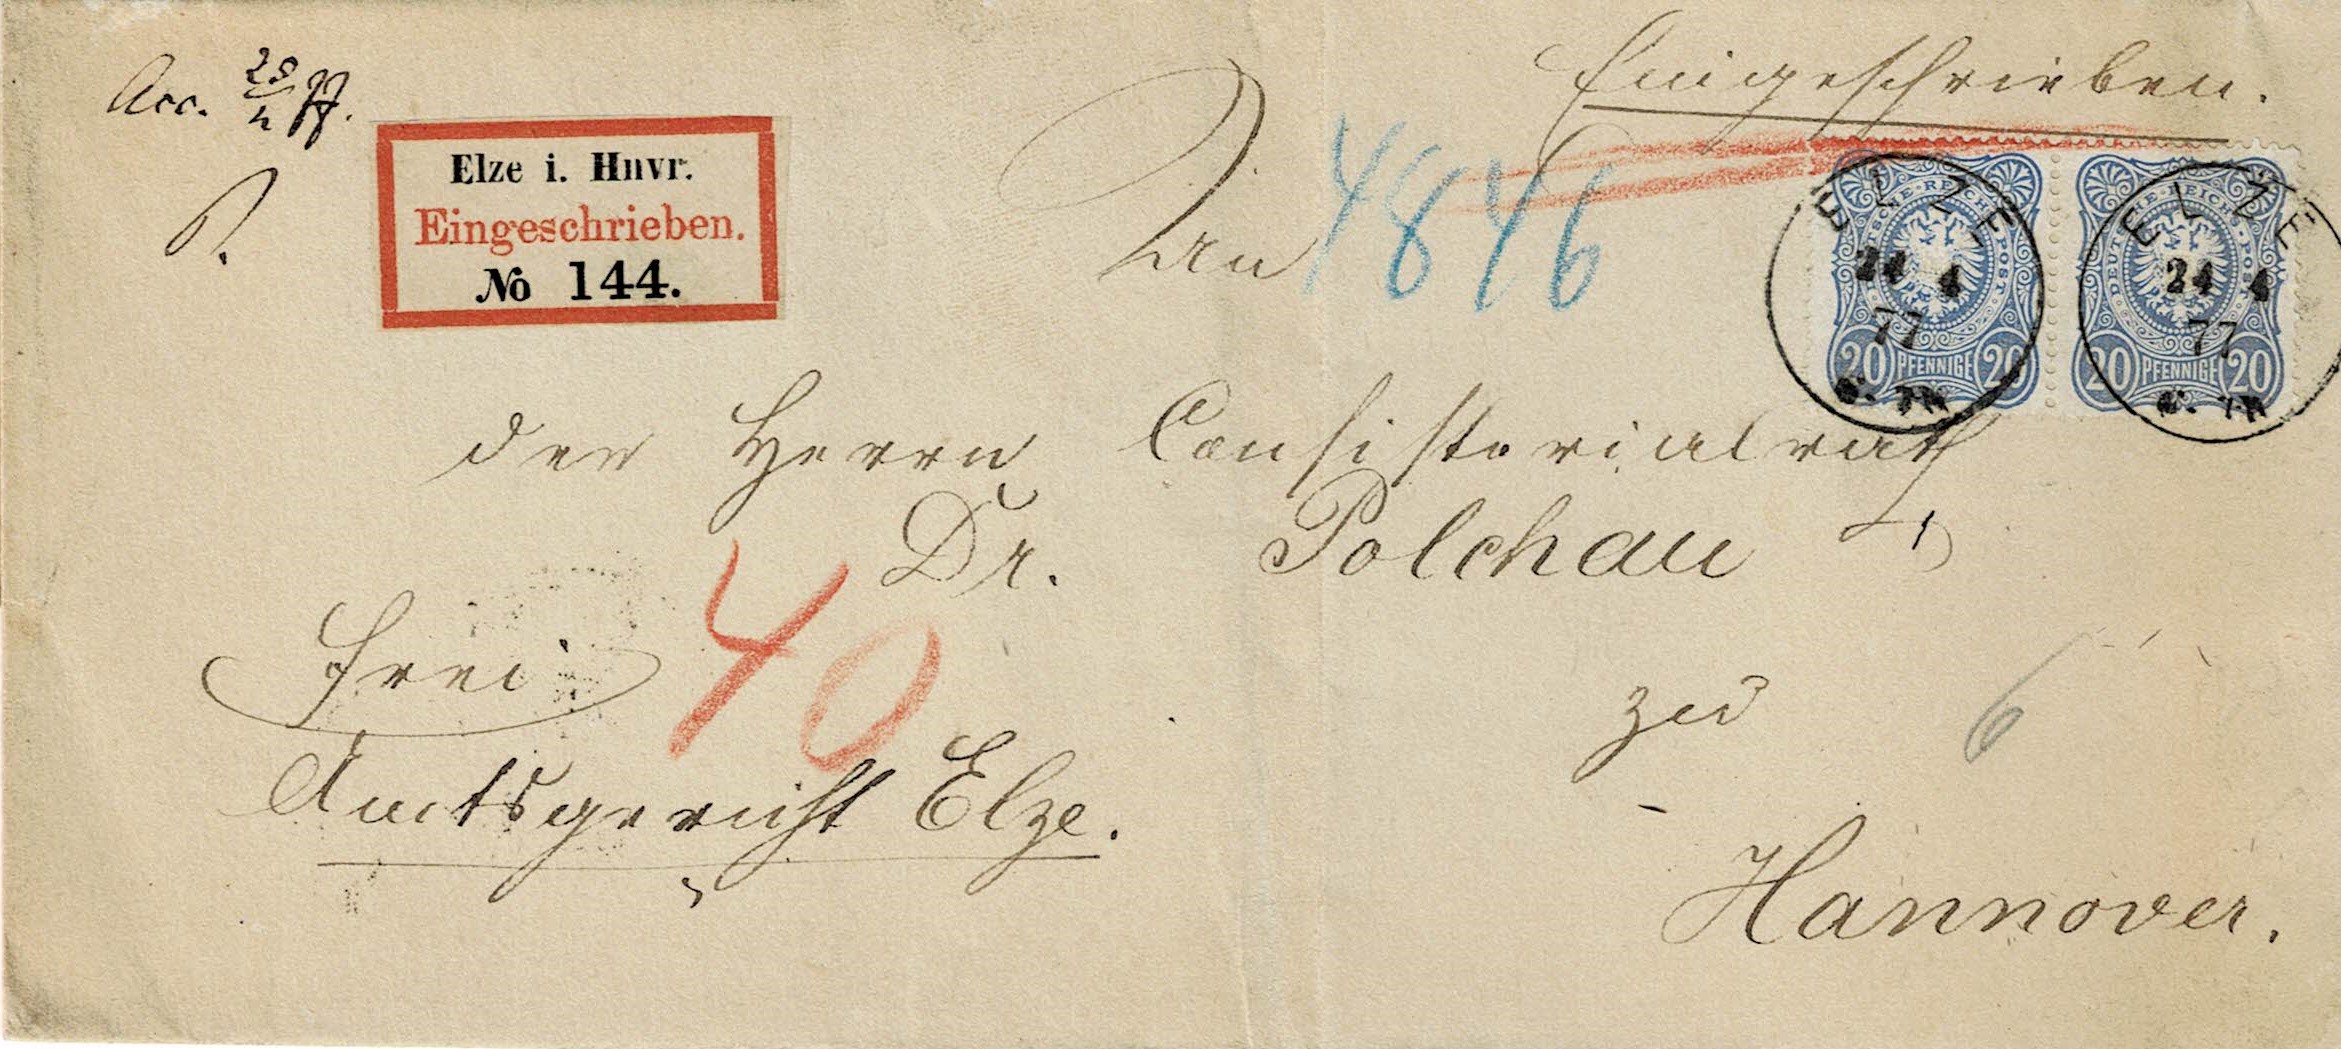 Acc. 25/4 77.
Eingeschrieben.
Elze i. Hnvr.
Eingeschrieben.
No 144.
An
4846
ELZE
24 4
77
6-7N
ELZE
24 4
77
6-7N
DEUTSCHE REICHS-POST
20 PFENNIGE 20
DEUTSCHE REICHS-POST
20 PFENNIGE 20
den Herrn Consistorialrath
Dr. Polchau
frei
40
zu
6
Amtsgericht Elze.
Hannover.